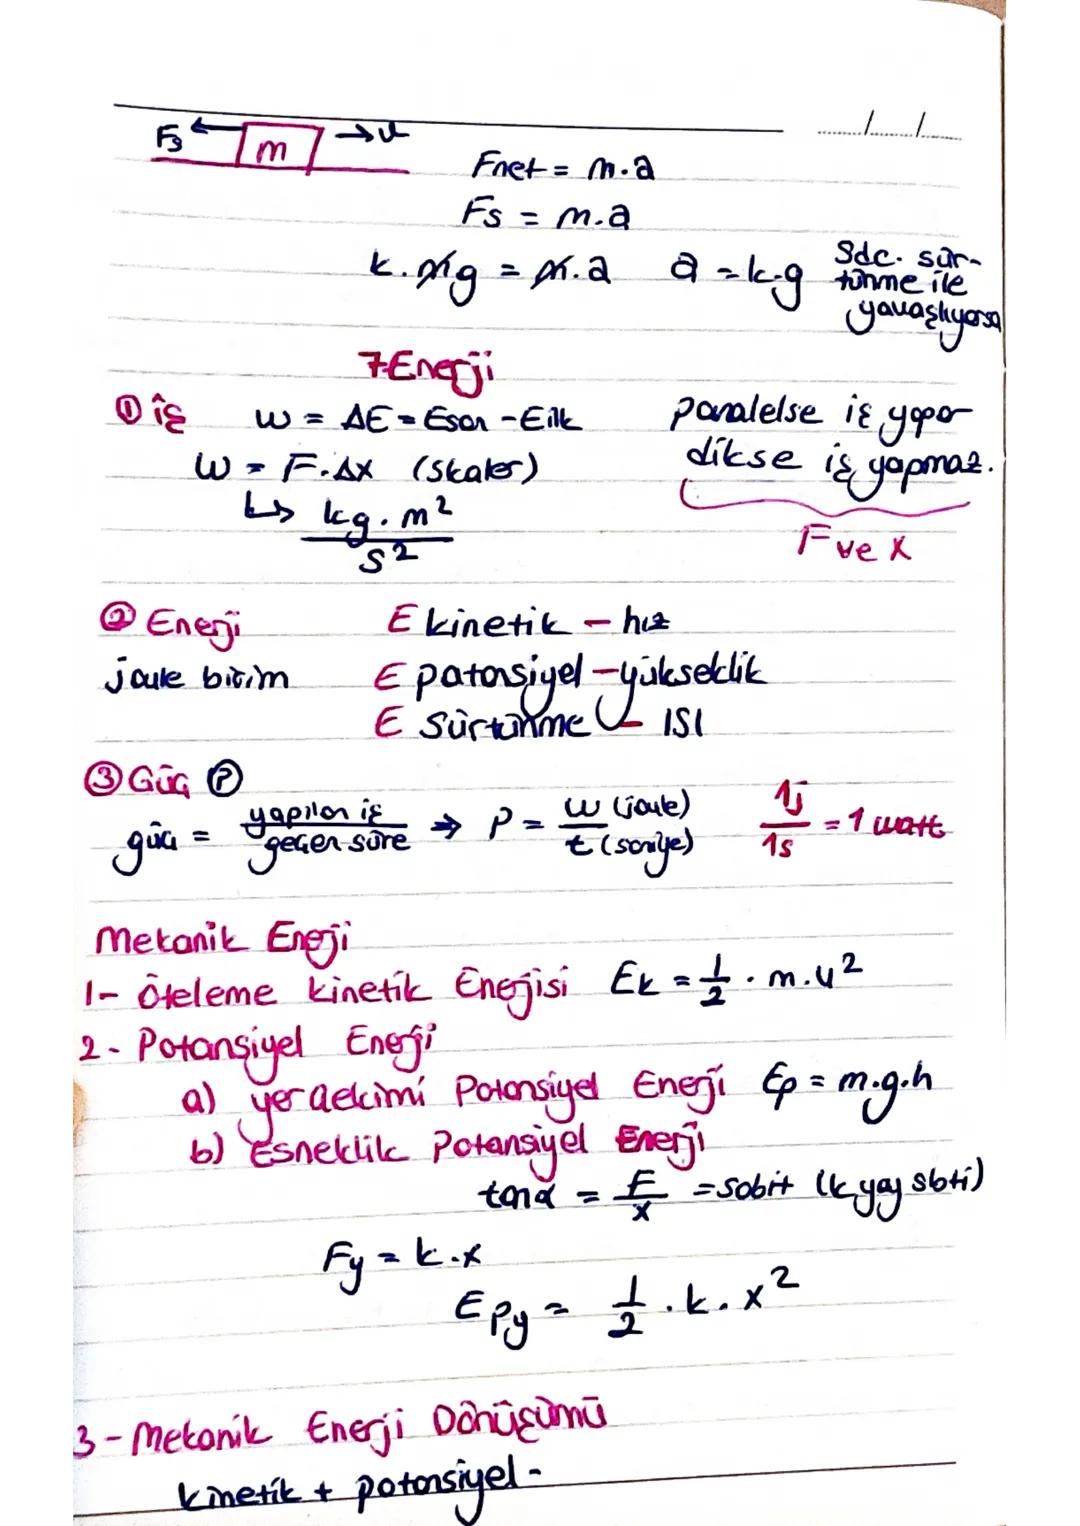 ...../...../.....
Fs m →v
Fnet = m.a
Fs = m.a
k.mg = m.a a = k.g Sdc. sür-
tünme ile
yavaşlıyorsa
7-Enerji
① iş W = ΔE = Eson - Eilk paralelse iş yapar
W = F.Δx (skaler) dikse iş yapmaz.
↳ kg.m²/s² F ve X
② Enerji E kinetik - hız
joule birim E potansiyel - yükseklik
E Sürtünme - ISI
③ Güç Ⓟ
güç = yapılan iş/geçen süre ⇒ P = W (joule)/t (saniye) 1j/1s = 1 watt
Mekanik Enerji
1- Öteleme kinetik Enerjisi Ek = 1/2 . m.v²
2- Potansiyel Enerji
a) yerçekimi Potansiyel Enerji Ep = m.g.h
b) Esneklik Potansiyel Enerji
tanα = F/x = sabit (k yay sbti)
Fy = k.x
Epy = 1/2 . k. x²
3- Mekanik Enerji Dönüşümü
kinetik + potansiyel -